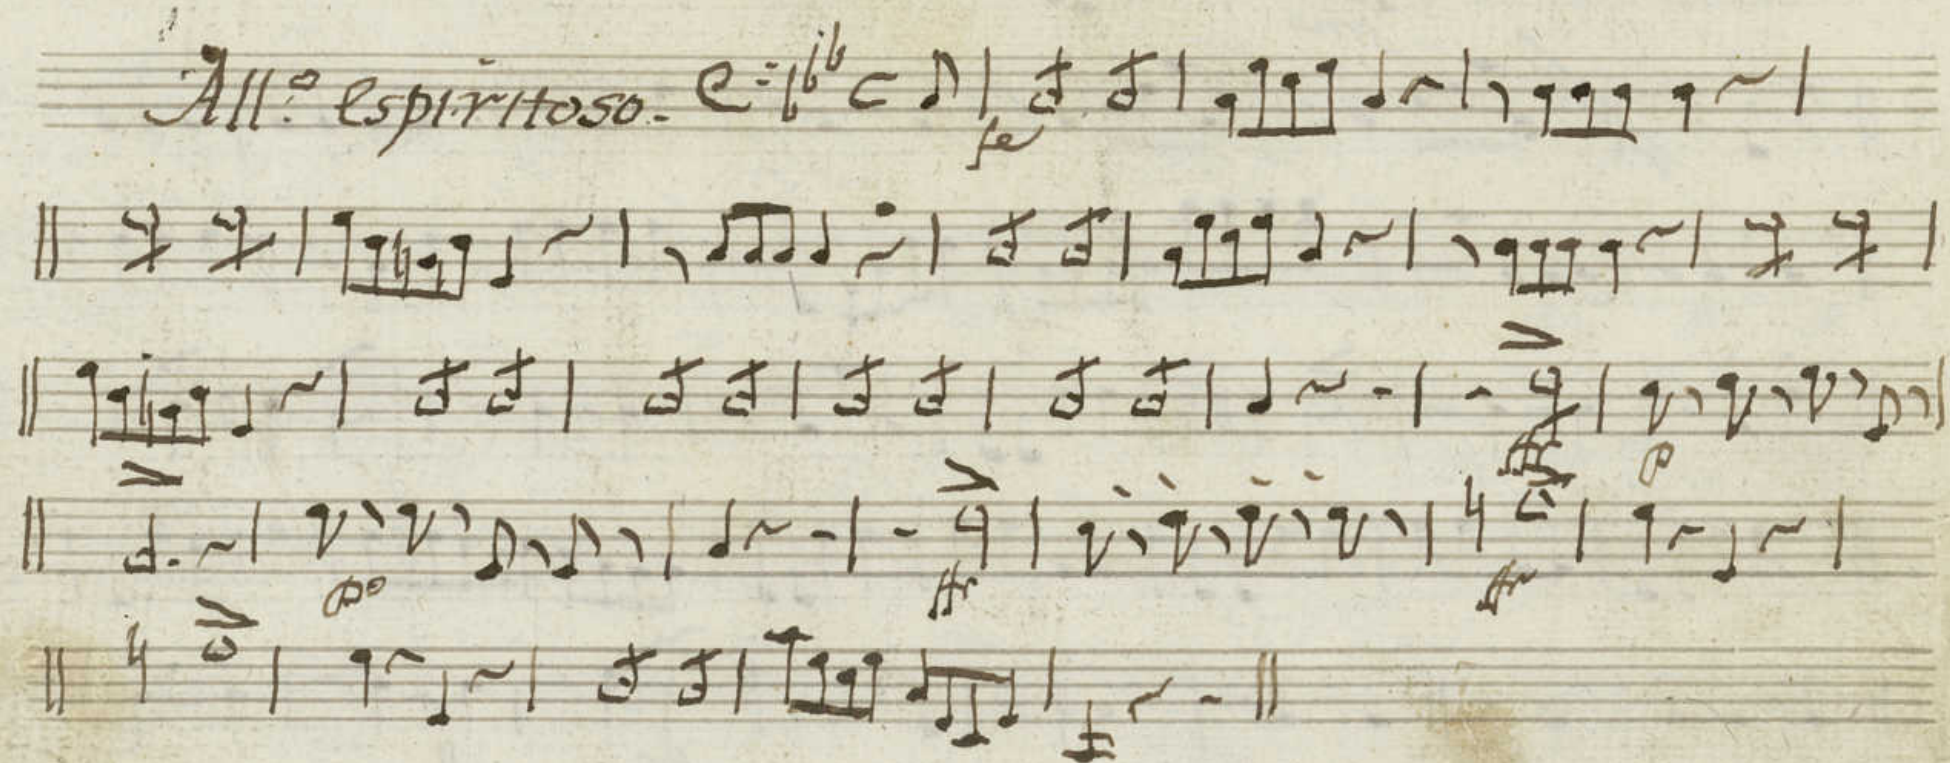 All.º espiritoso.
fe
ff p
pº ff ff